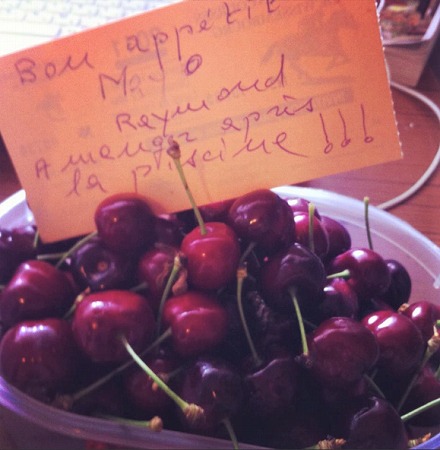 Bon appétit
Mayo
Raymond
A manger après
la piscine !!!